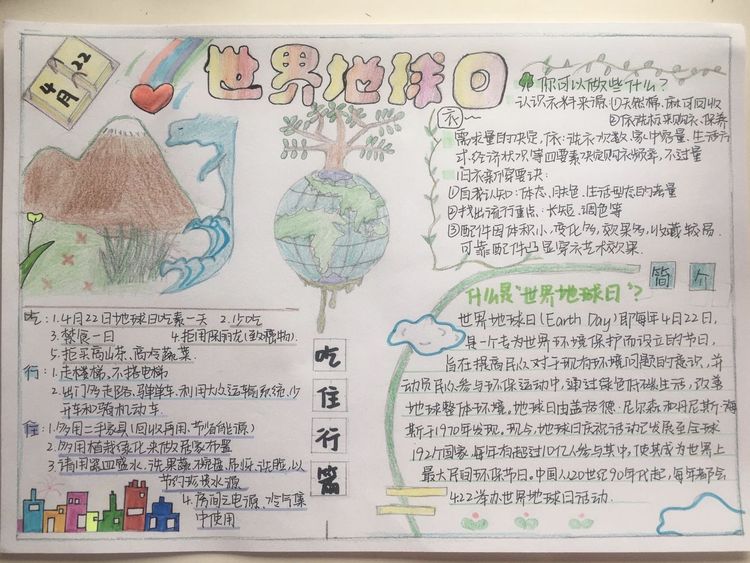 4月22
世界地球日
你可以做些什么?
认识衣料来源:①天然棉,麻可回收
②依洗标来购衣.保养
衣~
需求量的决定,依:洗衣次数.家中容量.生活方
式.经济状况,等四要素决定购衣频率,不过量
旧衣新穿要诀:
①自我认知:体态.肤色.生活型态的考量
②找出流行重点:长短.调色等
③配件因体积小,变化多,效果多,收藏较易.
可靠配件凸显穿衣艺术效果.
简介
什么是"世界地球日"?
世界地球日(Earth Day)即每年4月22日,
是一个专为世界环境保护而设立的节日,
旨在提高民众对于现有环境问题的意识,并
动员民众参与环保运动中,通过绿色低碳生活,改善
地球整体环境,地球日由盖洛德·尼尔森和丹尼斯·海
斯于1970年发现.现今,地球日庆祝活动已发展至全球
192个国家.每年有超过10亿人参与其中,使其成为世界上
最大民间环保节日.中国人从20世纪90年代起,每年都会
4.22举办世界地球日活动.
吃:1.4月22日地球日吃素一天 2.少吃
3.禁食一日 4.拒用保丽龙(致癌物).
5.拒买高山茶,高冷蔬菜
行:1.走楼梯,不搭电梯
2.出门多走路.骑单车.利用大众运输系统,少
开车和骑机动车.
住:1.多用二手家具(回收再用.节省能源)
2.多用植栽绿化来做居家布置
3.请用第四盥水,洗果蔬.碗盘.厕所.洗脸,以
节约水源
4.房间之电源,冷气集
中使用
吃
住
行
篇